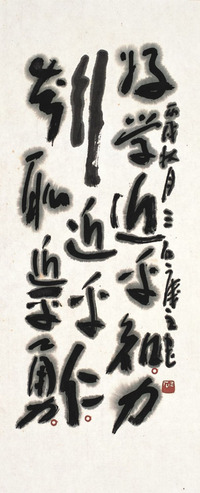 好学近乎知力
行近乎仁
知恥近乎勇
丙戌秋月三石